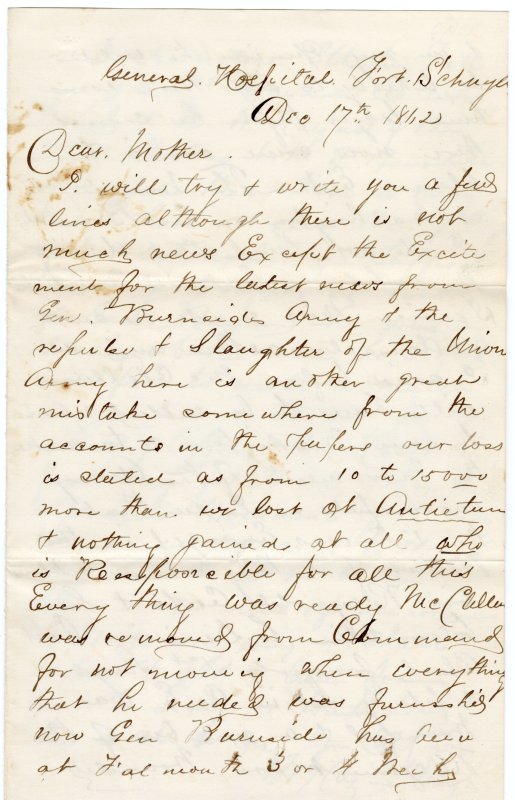 General. Hospital. Fort. Schuyl
Dec 17th 1862
Dear. Mother.
I. will try & write you a few
lines although there is not
much news Except the Excite
ment for the latest news from
Gen. Burnsides Army & the
repulse & Slaughter of the Union
Army here is another great
mistake somewhere from the
accounts in the Papers our loss
is stated as from 10 to 15000
more than we lost at Antietum
& nothing gained at all who
is Responscible for all this
Every thing was ready McClellan
was removed from Command
for not moving when everything
that he needed was furnished
now Gen Burnside has been
at Falmouth 3 or 4 Weeks